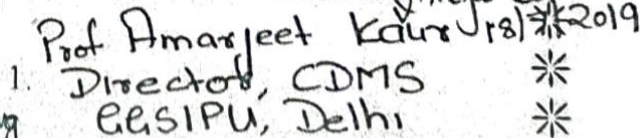 Prof Amarjeet Kaur 2019
1. Director, CDMS
GGSIPU, Delhi